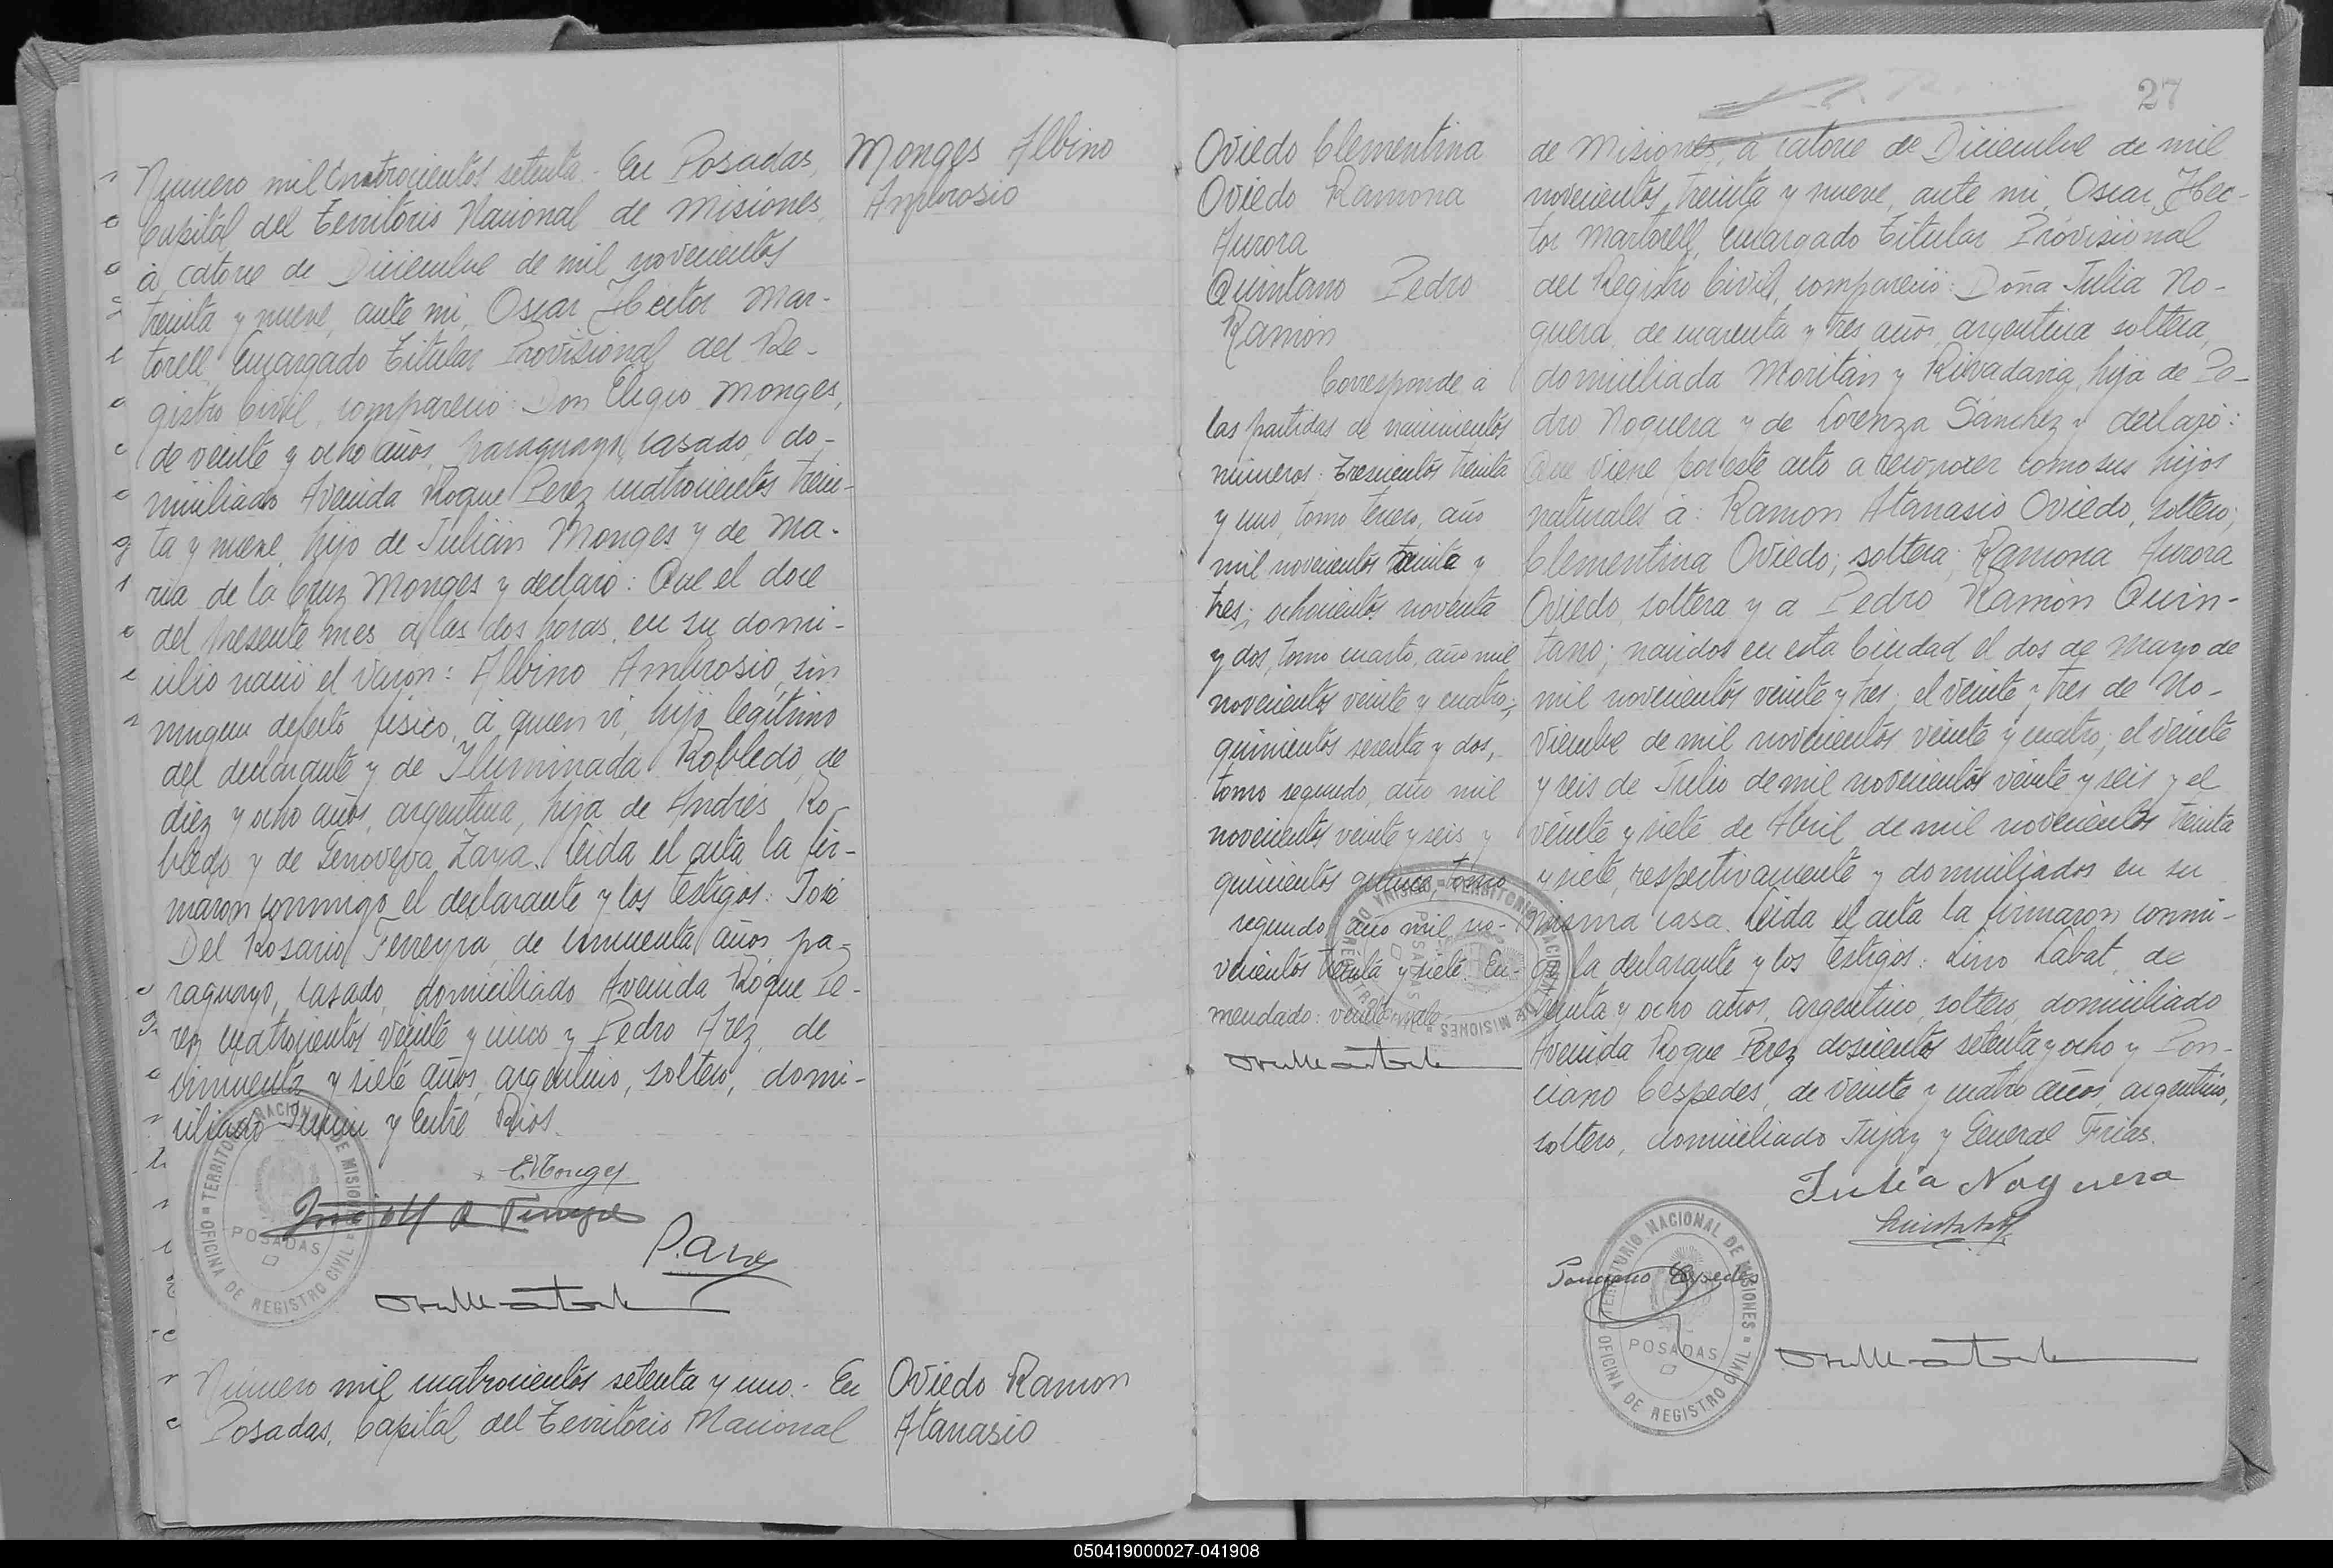 Número mil cuatrocientos setenta.- En Posadas,
Capital del Territorio Nacional de Misiones,
á catorce de Diciembre de mil novecientos
treinta y nueve, ante mi, Oscar Hector Mar-
torell, Encargado Titular Provisional del Re-
gistro Civil, compareció: Don Eligio Monges,
de veinte y ocho años, paraguayo, casado, do-
miciliado Avenida Roque Perez cuatrocientos trein-
ta y nueve, hijo de Julián Monges y de Ma-
ria de la Cruz Monges y declaró: Que el doce
del presente mes a las dos horas, en su domi-
cilio nació el varon: Albino Ambrosio, sin
ningun defecto fisico, á quien vi, hijo legítimo
del declarante y de Iluminada Robledo, de
diez y ocho años, argentina, hija de Andrés Ro-
bledo y de Genoveva Zaya. Leida el acta la fir-
maron conmigo el declarante y los testigos: José
Del Rosario Ferreyra, de cincuenta años, pa-
raguayo, casado, domiciliado Avenida Roque Pe-
rez cuatrocientos veinte y cinco y Pedro Arez, de
cincuenta y siete años, argentino, soltero, domi-
ciliado Junin y Entre Rios.
EMonges
P. Arez
TERRITORIO NACIONAL DE MISIONES
POSADAS
OFICINA DE REGISTRO CIVIL
Número mil cuatrocientos setenta y uno.- En
Posadas, Capital del Territorio Nacional
Monges Albino
Ambrosio
Oviedo Ramon
Atanasio
27
Oviedo Clementina
Oviedo Ramona
Aurora
Quintano Pedro
Ramón
Corresponde á
las partidas de nacimientos
números: trescientos treinta
y uno, tomo tercero, año
mil novecientos treinta y
tres; ochocientos noventa
y dos, tomo cuarto, año mil
novecientos veinte y cuatro;
quinientos sesenta y dos,
tomo segundo, año mil
novecientos veinte y seis y
quinientos quince, tomo
segundo, año mil no-
vecientos treinta y siete. En-
mendado: veinte vale
de Misiones, á catorce de Diciembre de mil
novecientos treinta y nueve, ante mi, Oscar Hec-
tor Martorell, Encargado Titular Provisional
del Registro Civil, compareció: Doña Julia No-
guera, de cuarenta y tres años, argentina, soltera,
domiciliada Moritán y Rivadavia, hija de Pe-
dro Noguera y de Lorenza Sánchez y declaró:
Que viene por este acto a reconocer como sus hijos
naturales á: Ramon Atanasio Oviedo, soltero;
Clementina Oviedo; soltera; Ramona Aurora
Oviedo, soltera y a Pedro Ramón Quin-
tano; nacidos en esta Ciudad el dos de Mayo de
mil novecientos veinte y tres; el veinte y tres de No-
viembre de mil novecientos veinte y cuatro; el veinte
y seis de Julio de mil novecientos veinte y seis y el
veinte y siete de Abril de mil novecientos treinta
y siete, respectivamente y domiciliados en su
misma casa. Leida el acta la firmaron conmi-
go la declarante y los testigos: Lino Labat, de
treinta y ocho años, argentino, soltero, domiciliado
Avenida Roque Perez doscientos setenta y ocho y Pon-
ciano Cespedes, de veinte y cuatro años, argentino,
soltero, domiciliado Jujuy y General Frias.
Julia Noguera
Ponciano Cespedes
TERRITORIO NACIONAL DE MISIONES
POSADAS
OFICINA DE REGISTRO CIVIL
050419000027-041908